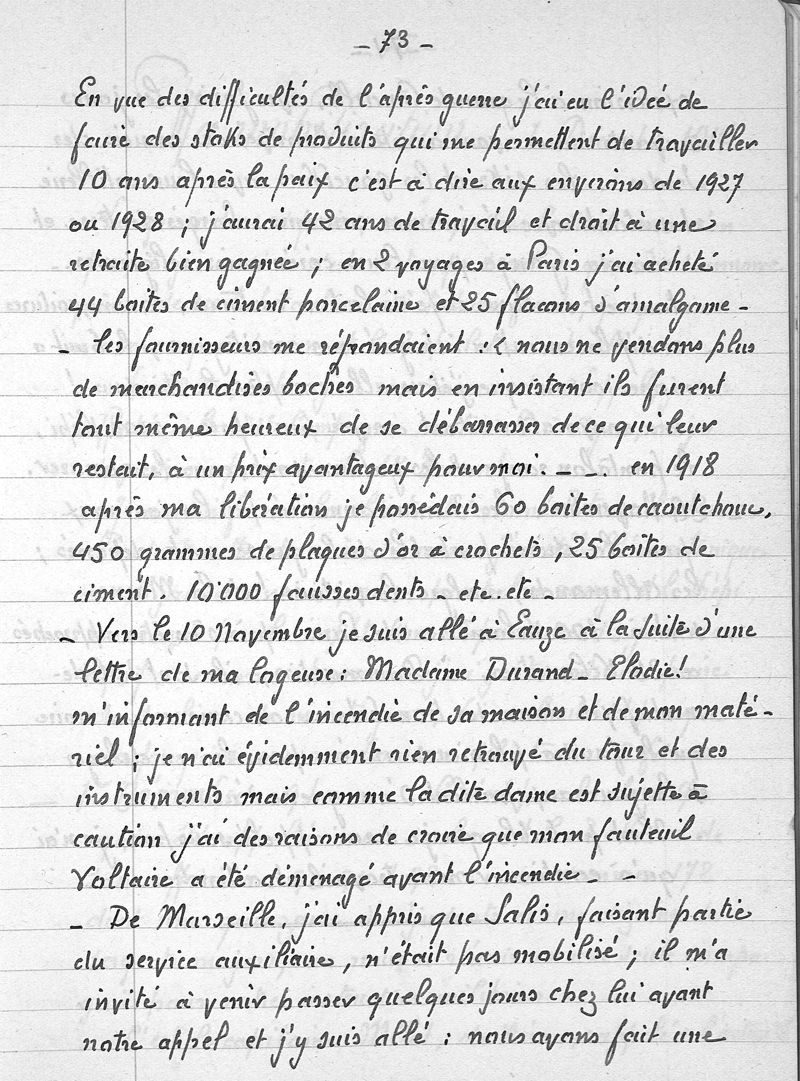 - 73 -
En vue des difficultés de l'après guerre j'ai eu l'ideé de
faire des staks de produits qui me permettent de travailler
10 ans après la paix c'est à dire aux environs de 1927
ou 1928 ; j'aurai 42 ans de travail et droit à une
retraite bien gagnée ; en 2 voyages à Paris j'ai acheté
44 boites de ciment porcelaine et 25 flacons d'amalgame -
- les fournisseurs me répondaient : < nous ne vendons plus
de marchandises boches mais en insistant ils furent
tout même heureux de se débarrasser de ce qui leur
restait, à un prix avantageux pour moi. - - . en 1918
après ma libération je possédais 60 boites de caoutchouc,
450 grammes de plaques d'or à crochets, 25 boites de
ciment. 10'000 fausses dents - etc. etc -
- Vers le 10 Novembre je suis allé à Eauze à la suite d'une
lettre de ma logeuse : Madame Durand - Elodie !
m'informant de l'incendie de sa maison et de mon maté-
riel ; je n'ai évidemment rien retrouvé du tour et des
instruments mais comme la dite dame est sujette à
caution j'ai des raisons de croire que mon fauteuil
Voltaire a été déménagé avant l'incendie - -
- De Marseille, j'ai appris que Salis, faisant partie
du service auxiliaire, n'était pas mobilisé ; il m'a
invité à venir passer quelques jours chez lui avant
notre appel et j'y suis allé : nous avons fait une